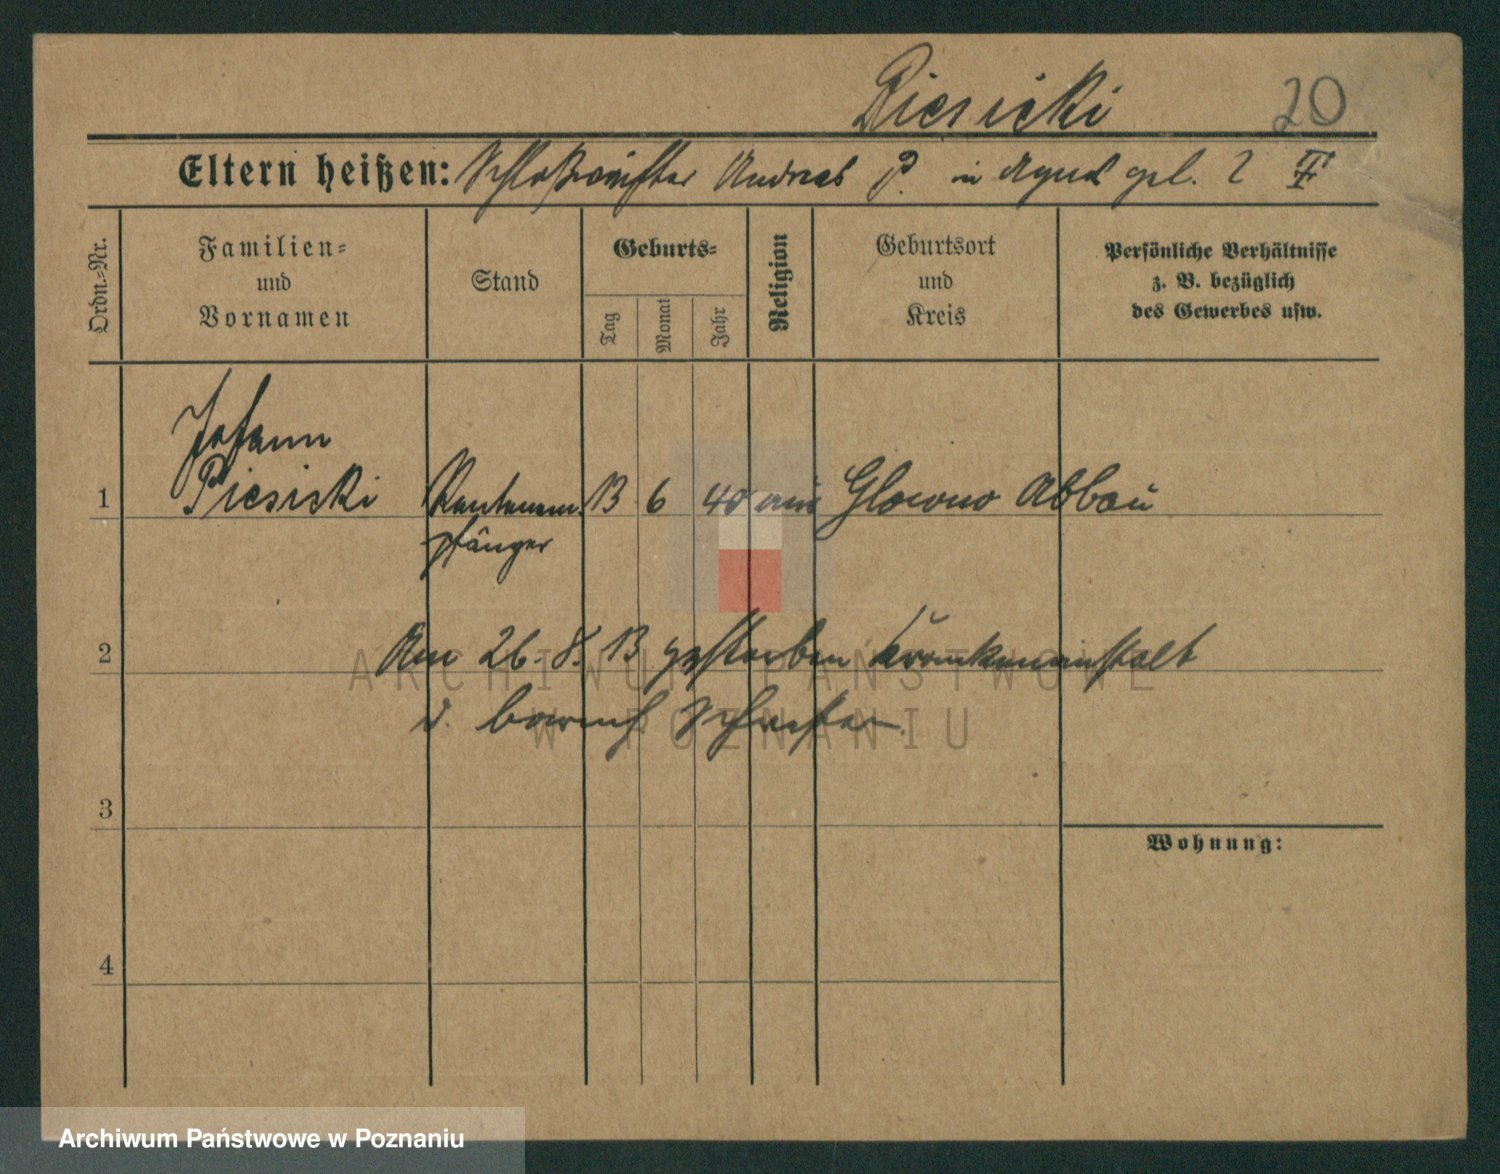 Piesicki 20
Eltern heißen: Andreas P. in geb. ?
Ordn.-Nr.
Familien-
und
Vornamen
Stand
Geburts-
Tag
Monat
Jahr
Religion
Geburtsort
und
Kreis
Persönliche Verhältnisse
z. B. bezüglich
des Gewerbes usw.
Johann
1 Piesicki Rentenem 13 6 40 aus Glowno Abbau
pfänger
2 Am 26. 8. 13 gestorben Krankenanstalt
d. barmh Schwester.
ARCHIWUM PAŃSTWOWE
W POZNANIU
3
Wohnung:
4
Archiwum Państwowe w Poznaniu